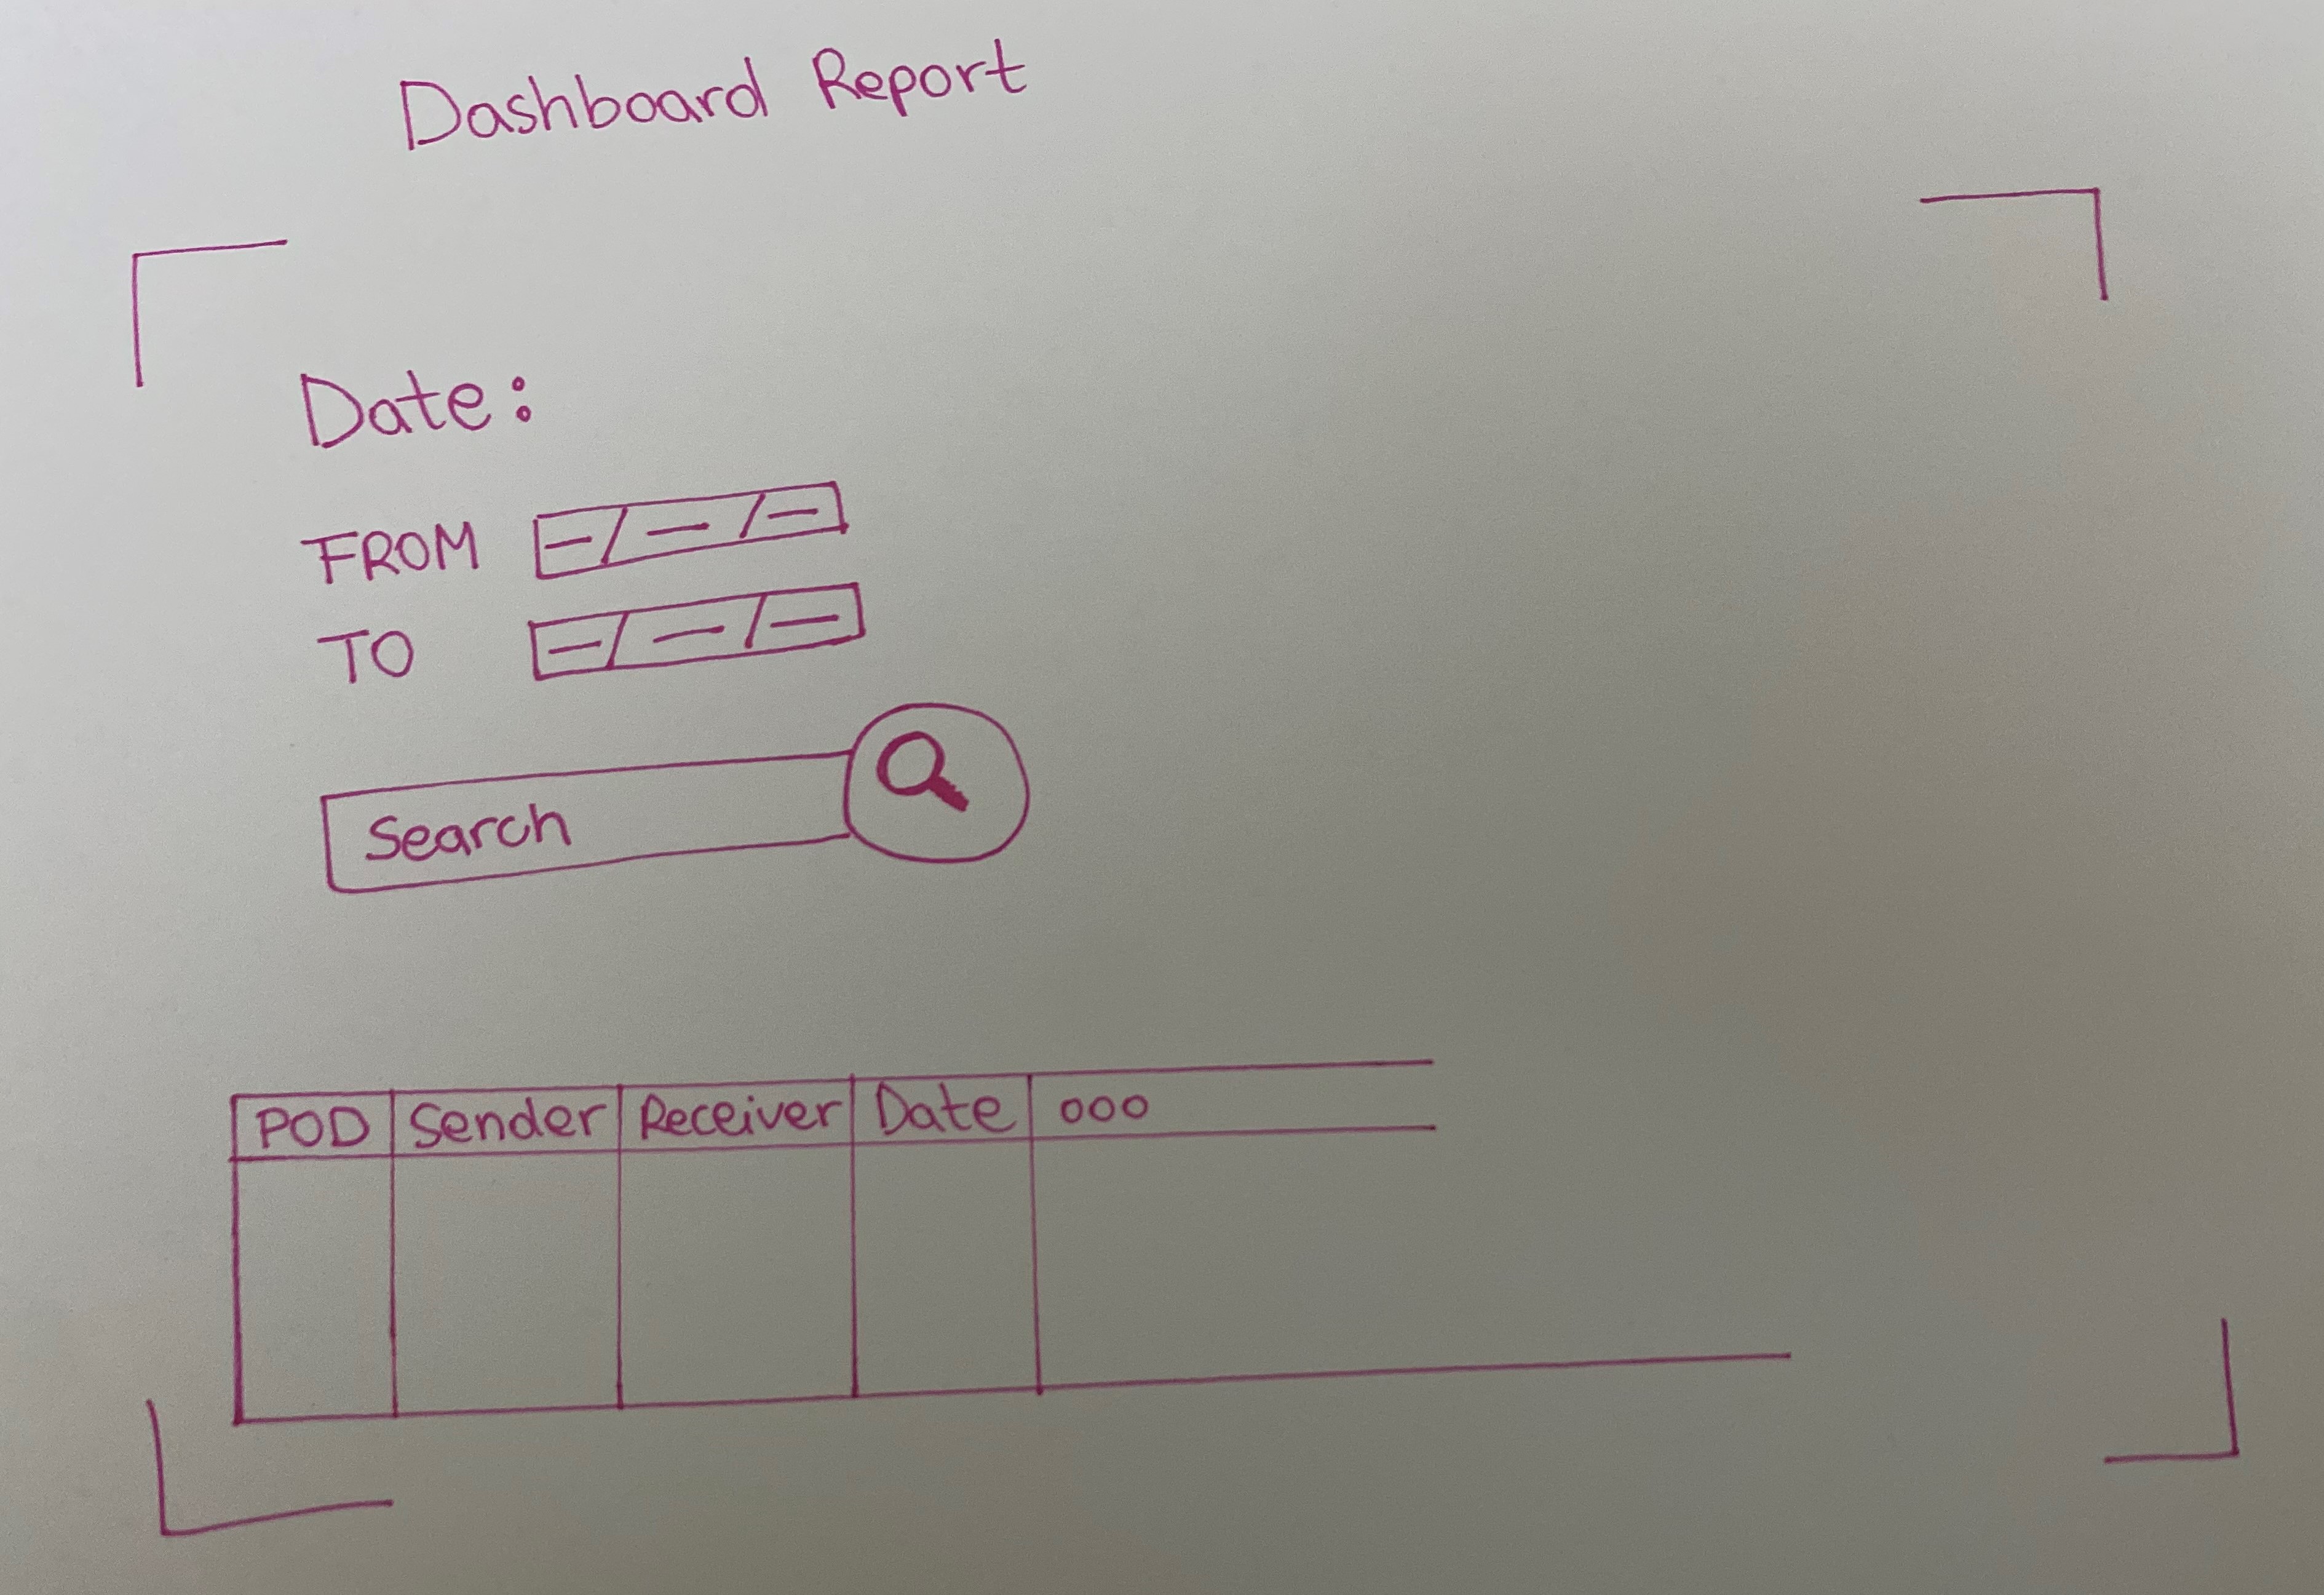 Dashboard Report
Date:
FROM -/-/-
TO -/-/-
Search
POD Sender Receiver Date ooo